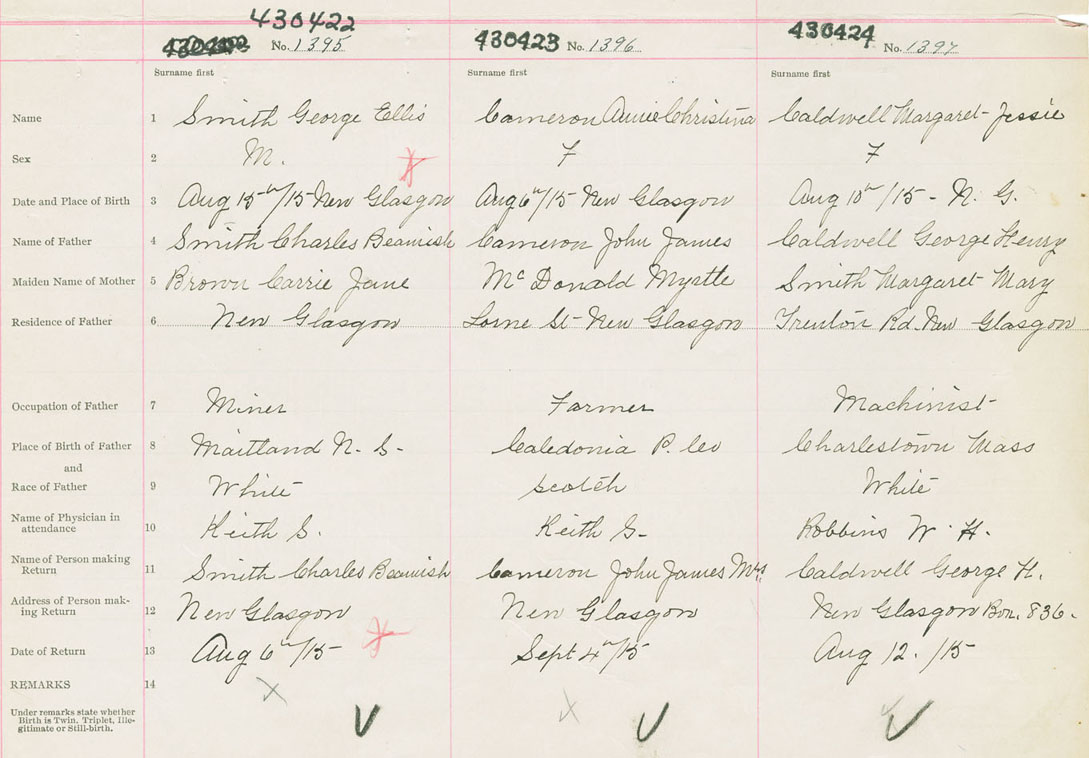 430422
No. 1395 430423 No. 1396 430424 No. 1397
Surname first Surname first Surname first
Name 1 Smith George Ellis Cameron Annie Christina Caldwell Margaret Jessie
Sex 2 M. F F
Date and Place of Birth 3 Aug 15th/15 New Glasgow Aug 6th/15 New Glasgow Aug 10th/15 - N. G.
Name of Father 4 Smith Charles Beamish Cameron John James Caldwell George Henry
Maiden Name of Mother 5 Brown Carrie Jane McDonald Myrtle Smith Margaret Mary
Residence of Father 6 New Glasgow Lorne St- New Glasgow Trenton Rd. New Glasgow
Occupation of Father 7 Miner Farmer Machinist
Place of Birth of Father 8 Maitland N. S- Caledonia P. Co Charlestown Mass
and
Race of Father 9 White Scotch White
Name of Physician in
attendance 10 Keith S. Keith S- Robbins W. H.
Name of Person making
Return 11 Smith Charles Beamish Cameron John James Mrs. Caldwell George H.
Address of Person mak-
ing Return 12 New Glasgow New Glasgow New Glasgow Box. 836.
Date of Return 13 Aug 6th/15 Sept 4th/15 Aug 12. /15
REMARKS 14
Under remarks state whether
Birth is Twin, Triplet, Ille-
gitimate or Still-birth.